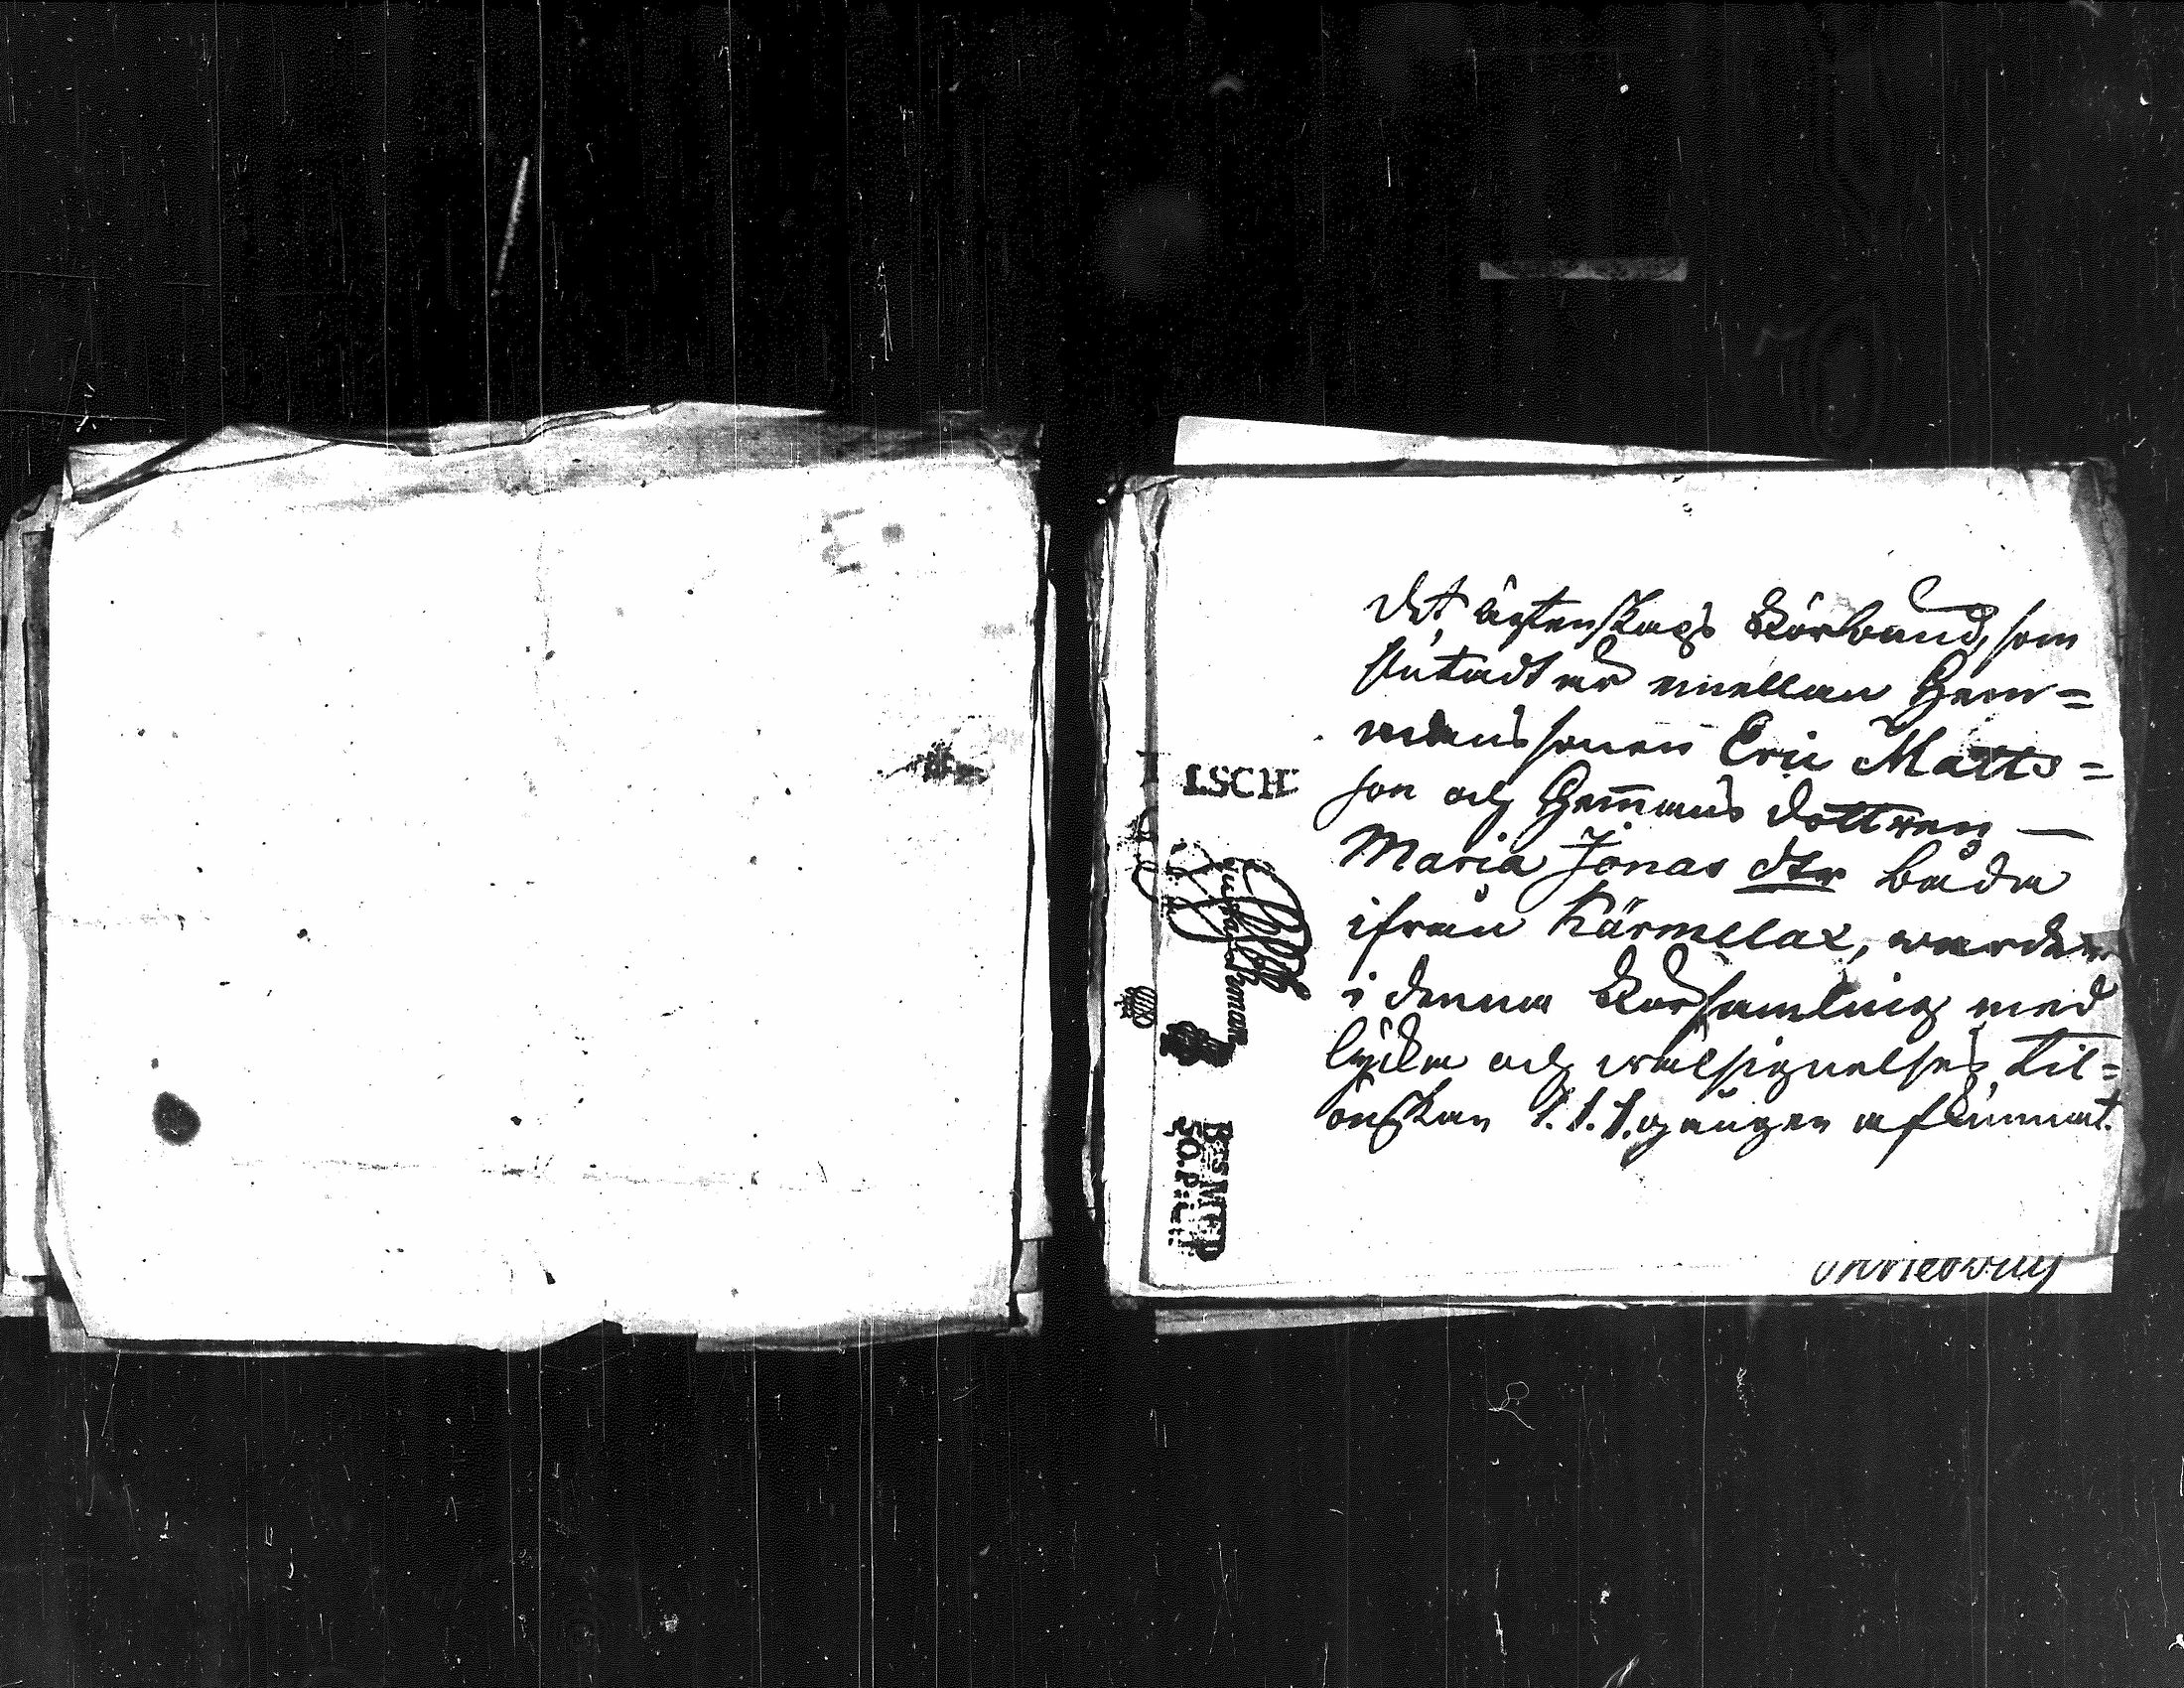 Det ägtenskaps Förbund, som
slutadt är emellan Hem=
mans sonen Eric Matts=
son och Hem̄ans dottren —
Maria Jonas dtr båda
ifrån Kärmelax, warder
i denna Församling med
lycka och wälsignelses til=
önskan 1. 1. 1. gången afkunnat.
LSCH